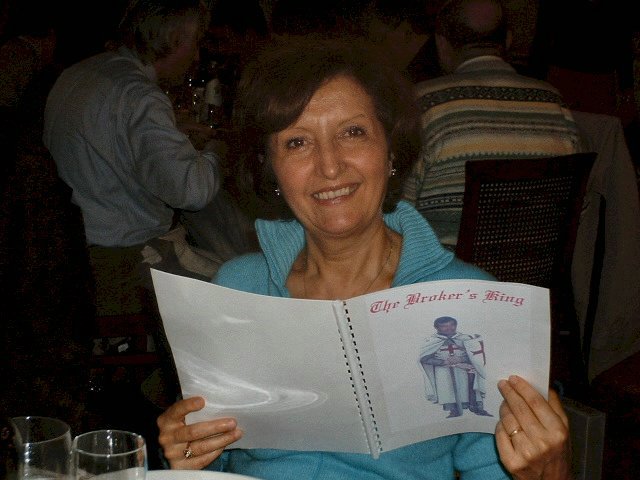 The Broker's King